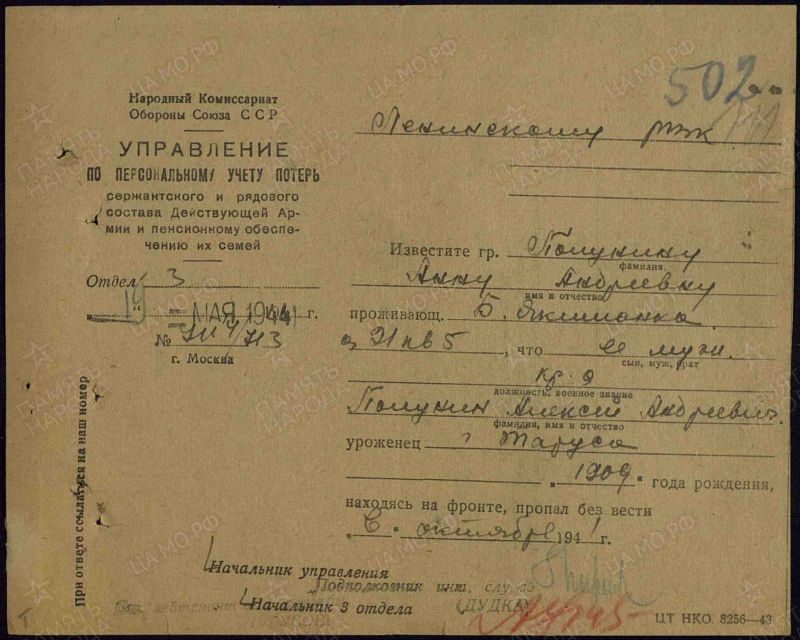 502
Народный Комиссариат
Обороны Союза ССР
УПРАВЛЕНИЕ
ПО ПЕРСОНАЛЬНОМУ УЧЕТУ ПОТЕРЬ
сержантского и рядового
состава Действующей Ар-
мии и пенсионному обеспе-
чению их семей
Отдел 3
19 МАЯ 1944 г.
№
г. Москва
При ответе ссылаться на наш номер
Ленинскому рвк
Известите гр. Полунину
фамилия
Анну Андреевну
имя и отчество
проживающ. Б. Якиманка
д 21 кв 5, что ее муж
сын, муж, брат
кр-ц
должность, военное звание
Полунин Алексей Андреевич
фамилия, имя и отчество
уроженец г Таруса
1909 года рождения,
находясь на фронте, пропал без вести
в октябре 1941 г.
Начальник управления
Подполковник инт. службы
Начальник 3 отдела (ДУДКА)
ЦТ НКО. 8256—43
ПАМЯТЬ НАРОДА
ЦАМО.РФ